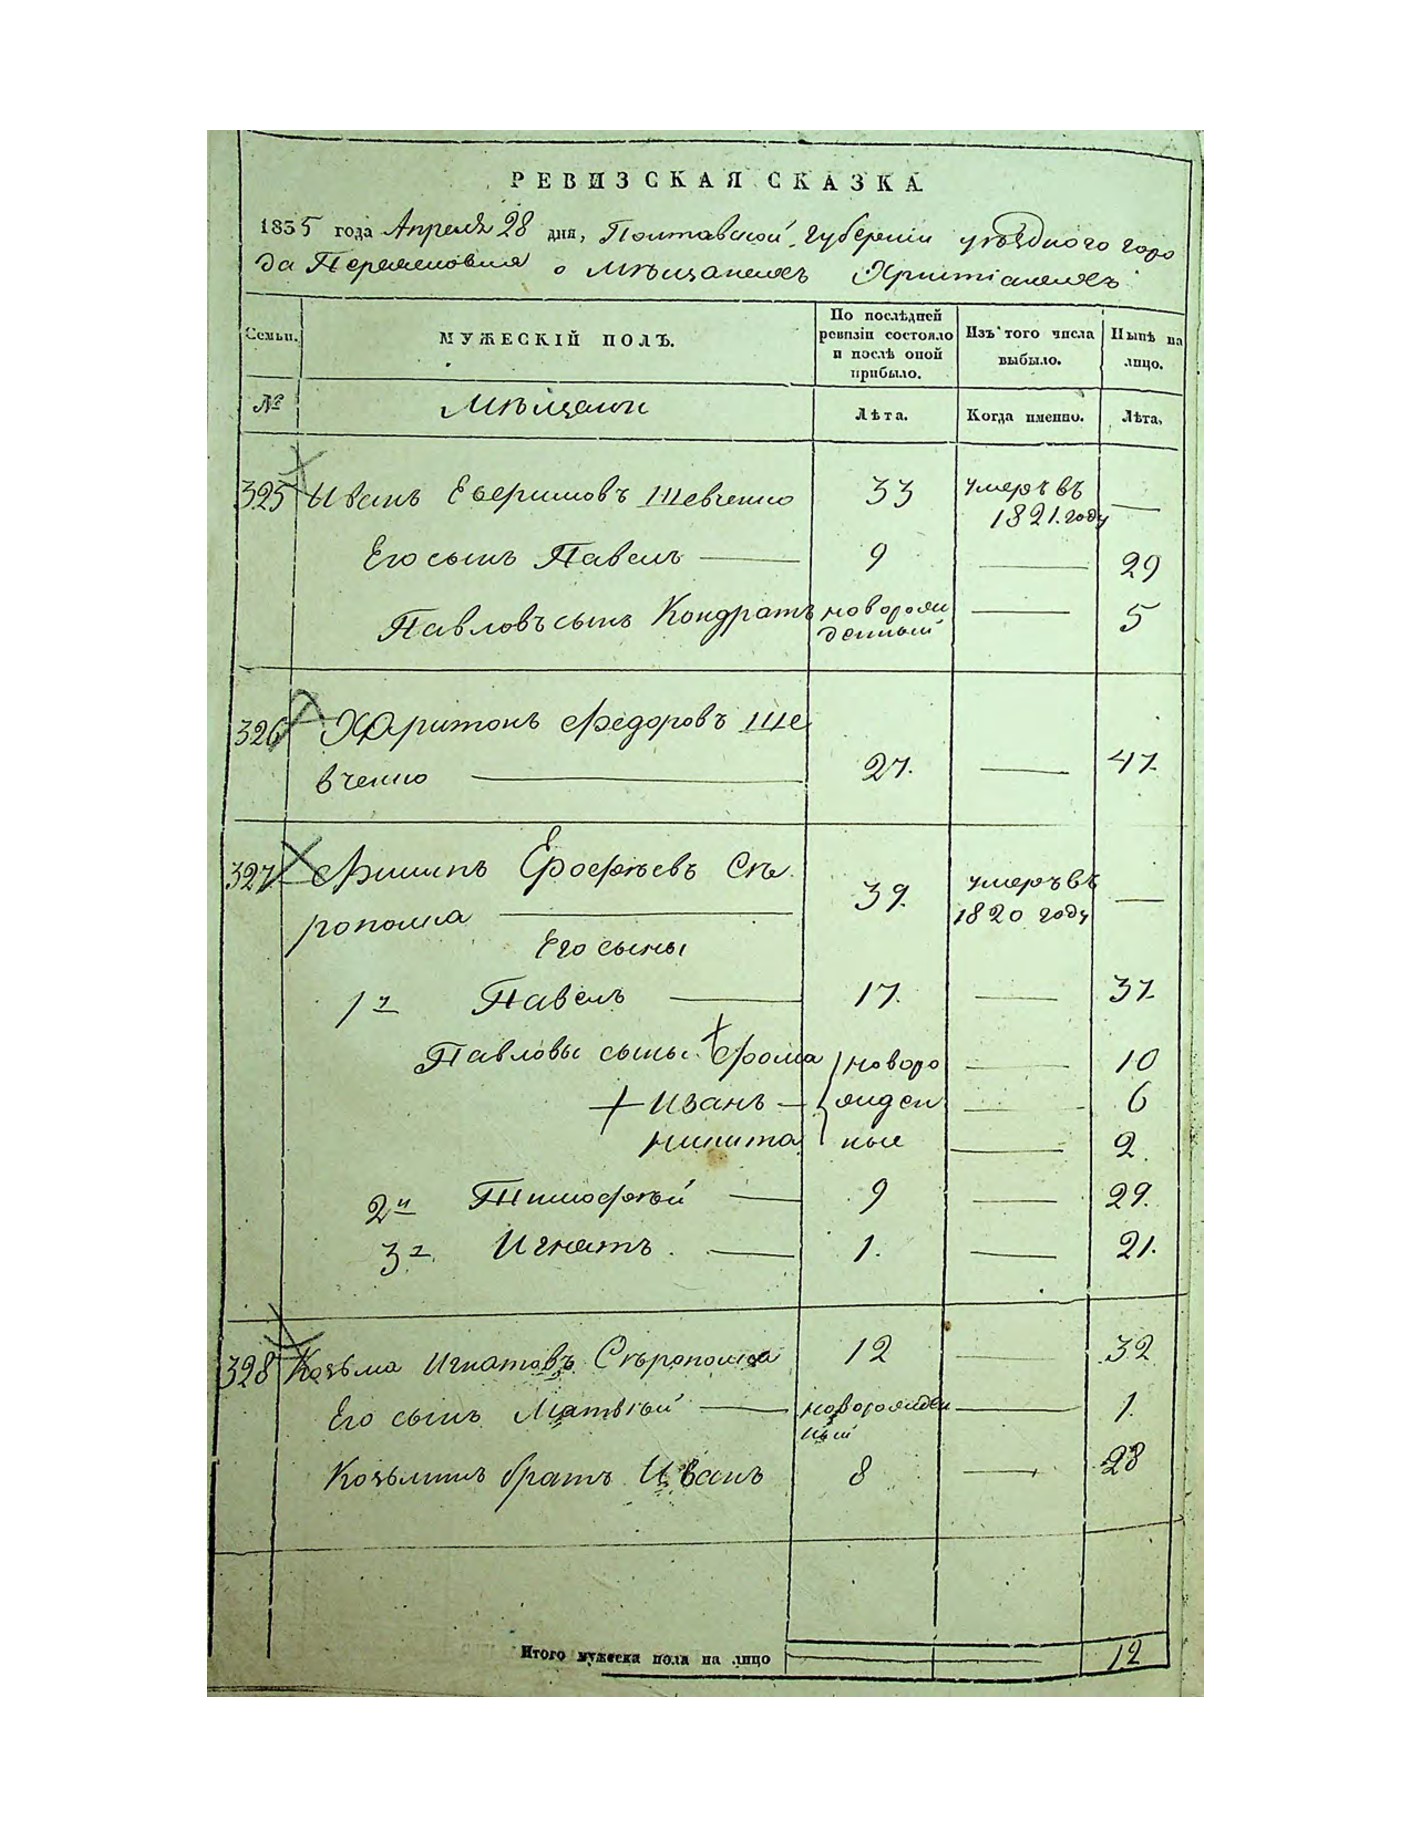 РЕВИЗСКАЯ СКАЗКА
1835 года Апреля 28 дня, Полтавской губернии уѣздного горо
да Переяковля о Мѣщанехъ Христіанехъ
Семьи. МУЖЕСКІЙ ПОЛЪ. По послѣдней ревизіи состояло и послѣ оной прибыло. Изъ того числа выбыло. Нынѣ на лицо.
№ Мѣщани Лѣта. Когда именно. Лѣта.
325 Иванъ Евфимовъ Шевченко 33 умеръ въ 1821. году —
Его сынъ Павелъ — 9 — 29
Павловъ сынъ Кондратъ новорож денный — 5
326 Харитонъ Федоровъ Ше
вченко — 27. — 47.
327 Филипъ Ерофѣевъ Сѣ
рополка — 39. умеръ въ 1820 году —
Его сыны
1й Павелъ — 17. — 37.
Павловы сыны Фома новоро — 10
Иванъ — жден — 6
Никита ные — 2.
2й Тимофѣй — 9 — 29.
3й Игнатъ. — 1. — 21.
328 Козьма Игнатовъ Сѣрополка 12 — 32
Его сынъ Матвѣй — новорожден ный — 1.
Козьминъ братъ Иванъ 8 — 28
Итого мужеска пола на лицо 12